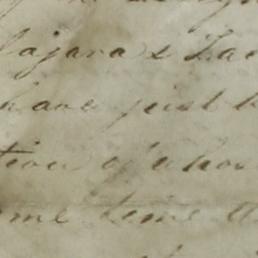 lajara & Zac
have just b
tion of whom
ome time th